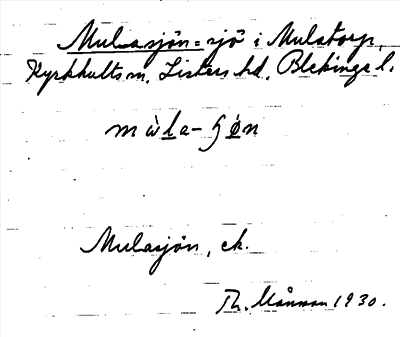 Mulasjön = sjö i Mulatorp,
Kyrkhults sn, Listers hd, Blekinge l.
mùla-ʃǿn
Mulasjön, ek.
Th. Månsson 1930.